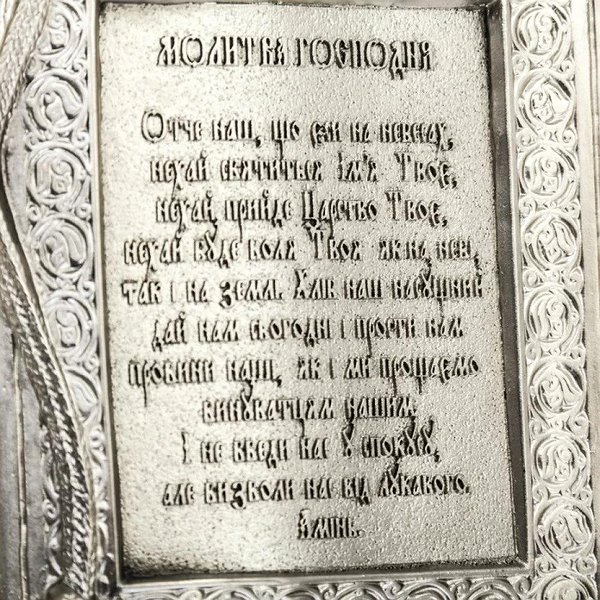 МОЛИТВА ГОСПОДНЯ
Отче наш, що єси на небесах,
нехай святиться Ім'я Твоє,
нехай прийде Царство Твоє,
нехай буде воля Твоя як на небі,
так і на землі. Хліб наш насущний
дай нам сьогодні і прости нам
провини наші, як і ми прощаємо
винуватцям нашим.
І не введи нас у спокусу,
але визволи нас від лукавого.
Амінь.